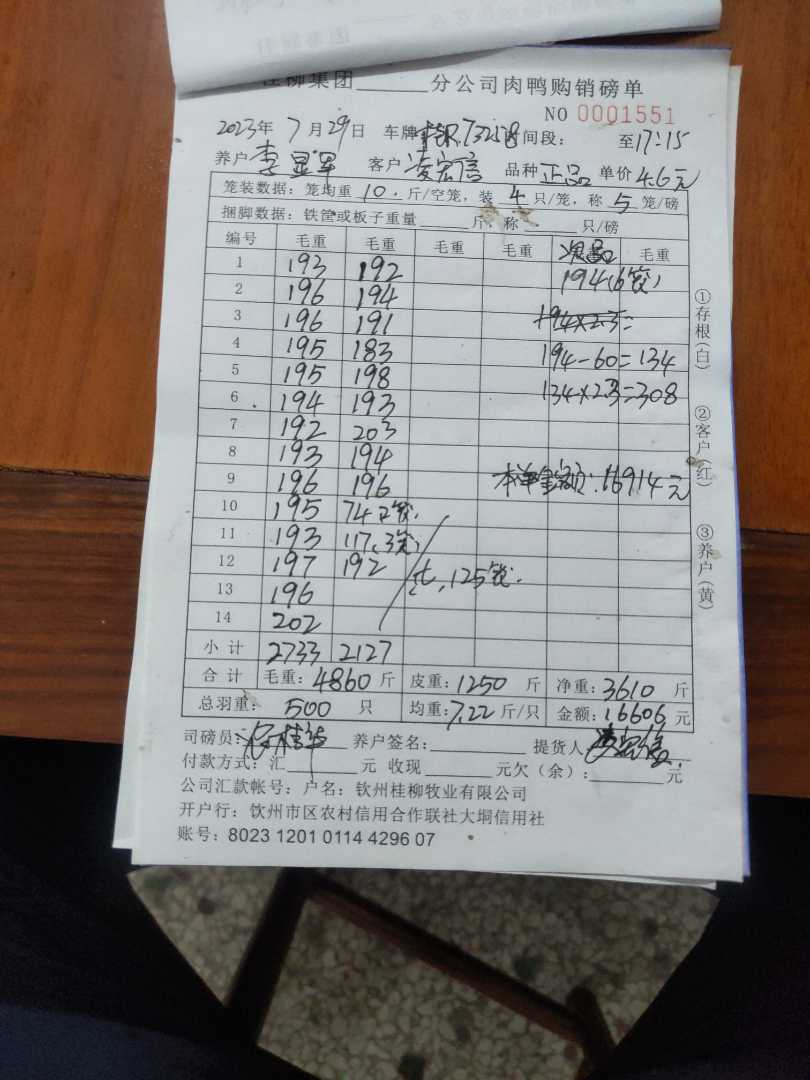 柳集团______分公司肉鸭购销磅单
NO 0001551
2023年 7月29日 车牌 73258 间段: 至17:15
养户 李显军 客户 凌宏信 品种 正品 单价 4.6元
笼装数据: 笼均重 10. 斤/空笼, 装 4 只/笼, 称 5 笼/磅
捆脚数据: 铁筐或板子重量______斤, 称______只/磅
编号 毛重 毛重 毛重 毛重 次品 毛重
1 193 192 194(6笼)
2 196 194
3 196 191 194×2.3=
4 195 183 194-60=134
5 195 198 134×2.3=308
6 194 193
7 192 203
8 193 194
9 196 196 本单金额:16914元
10 195 74 2笼,
11 193 117(3笼)
12 197 192 共,125笼.
13 196
14 202
小计 2733 2127
合计 毛重:4860斤 皮重:1250 斤 净重:3610 斤
总羽重: 500 只 均重:7.22斤/只 金额:16606元
司磅员: 养户签名:________ 提货人 凌宏信
付款方式:汇______元 收现______元欠(余):______元
公司汇款帐号:户名:钦州桂柳牧业有限公司
开户行:钦州市区农村信用合作联社大垌信用社
账号:8023 1201 0114 4296 07
①存根(白)
②客户(红)
③养户(黄)